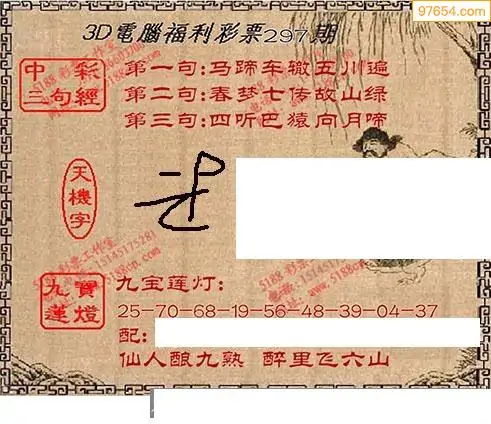 97654.com
3D電腦福利彩票297期
中彩三句經
第一句:马蹄车辙五川遍
第二句:春梦七传故山绿
第三句:四听巴猿向月啼
天機字
5188 彩票工作室
15145175281
www.5188cn.com
九寶蓮燈
九宝莲灯:
25-70-68-19-56-48-39-04-37
配:
仙人酿九熟 醉里飞六山